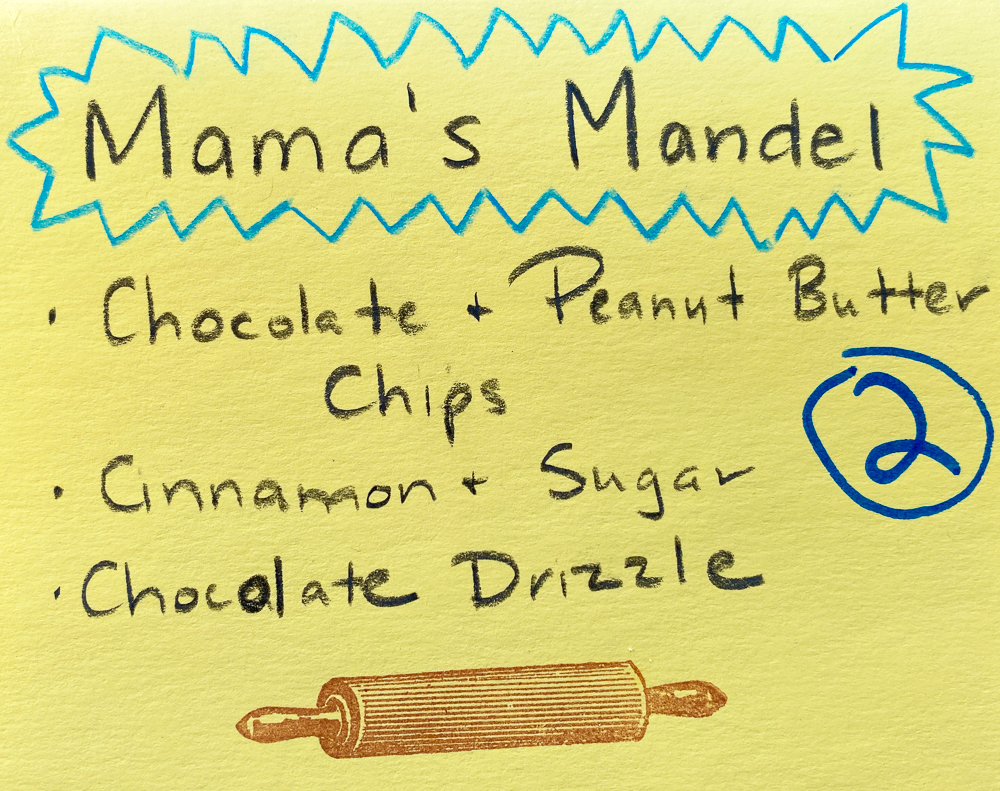 Mama's Mandel
· Chocolate + Peanut Butter
Chips
2
· Cinnamon + Sugar
· Chocolate Drizzle